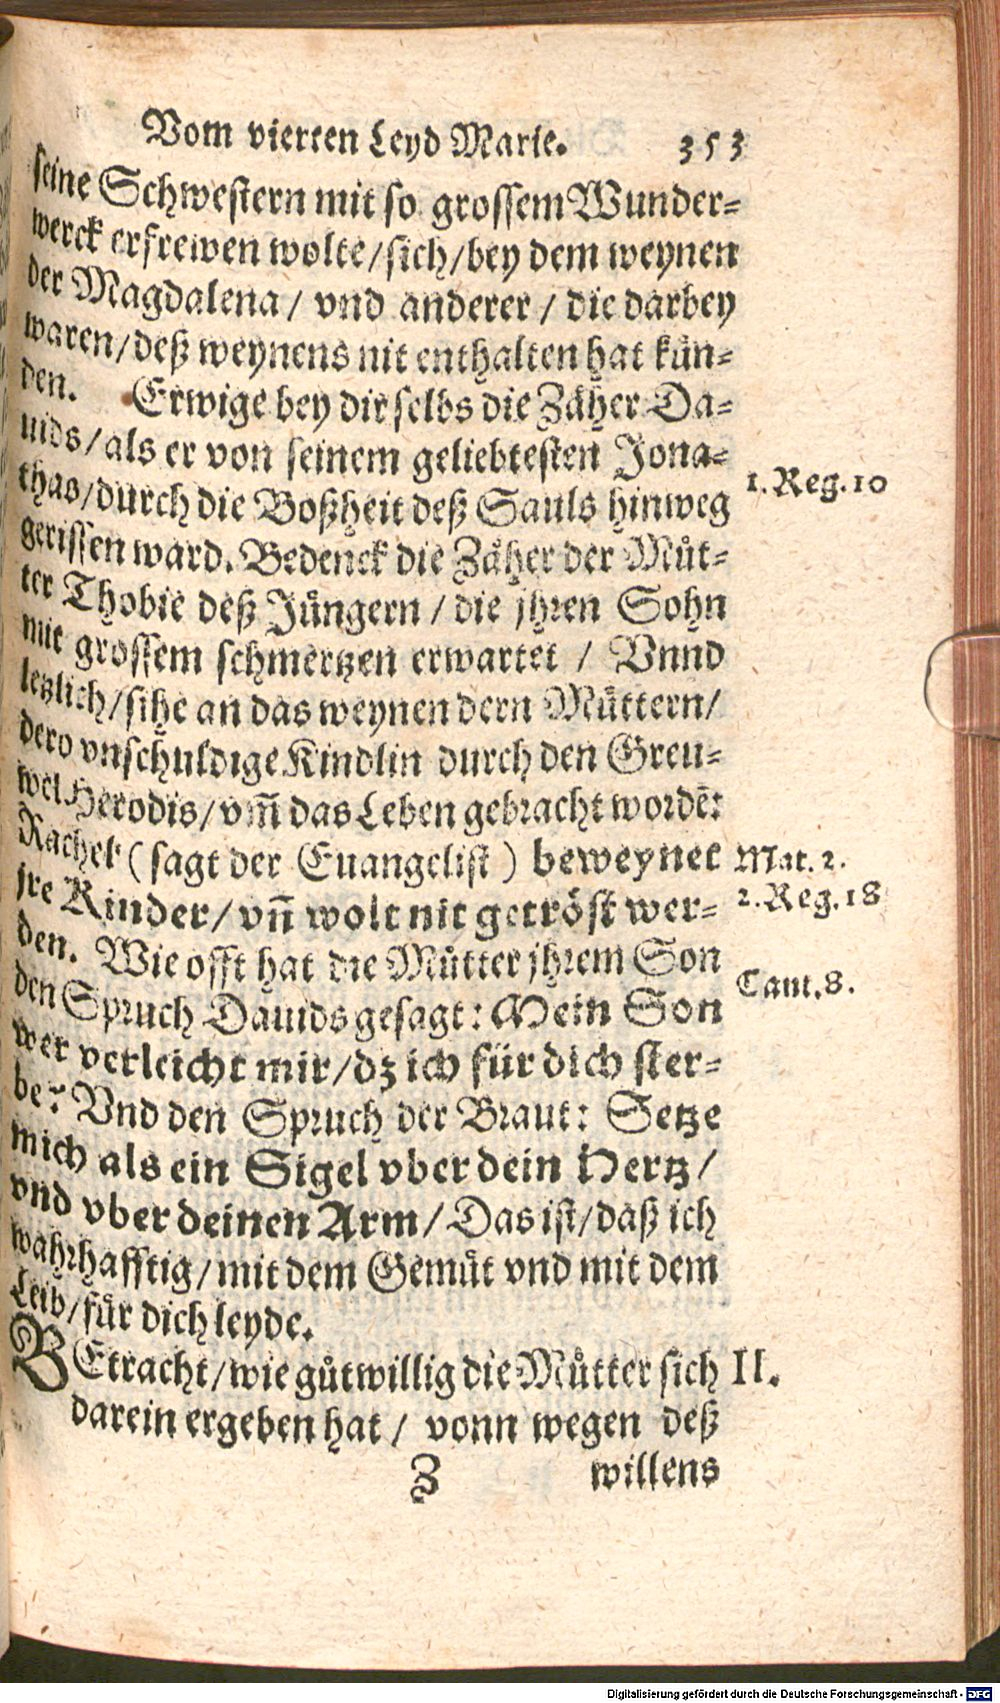 Vom vierten Leyd Marie. 353
seine Schwestern mit so grossem Wunder=
werck erfrewen wolte/sich/bey dem weynen
der Magdalena/ vnd anderer/ die darbey
waren/deß weynens nit enthalten hat kün=
den. Erwige bey dir selbs die Zäher Da=
uids/als er von seinem geliebtesten Jona=
thas/durch die Boßheit deß Sauls hinweg
1. Reg. 10
gerissen ward. Bedenck die Zäher der Můt=
ter Thobie deß Jüngern/ die jhren Sohn
mit grossem schmertzen erwartet/ Vnnd
letzlich/sihe an das weynen dern Müttern/
dero vnschuldige Kindlin durch den Greu=
wel Herodis/vm̃ das Leben gebracht wordẽ:
Rachel (sagt der Euangelist) beweynet
Mat. 2.
jre Kinder/vñ wolt nit getröst wer=
2. Reg. 18
den. Wie offt hat die Můtter jhrem Son
Cant. 8.
den Spruch Dauids gesagt: Mein Son
wer verleicht mir/dz ich für dich ster=
be? Vnd den Spruch der Braut: Setze
mich als ein Sigel vber dein Hertz/
vnd vber deinen Arm/Das ist/daß ich
wahrhafftig/mit dem Gemüt vnd mit dem
Leib/für dich leyde.
BEtracht/wie gůtwillig die Můtter sich
II.
darein ergeben hat/ vonn wegen deß
Z willens
Digitalisierung gefördert durch die Deutsche Forschungsgemeinschaft - DFG